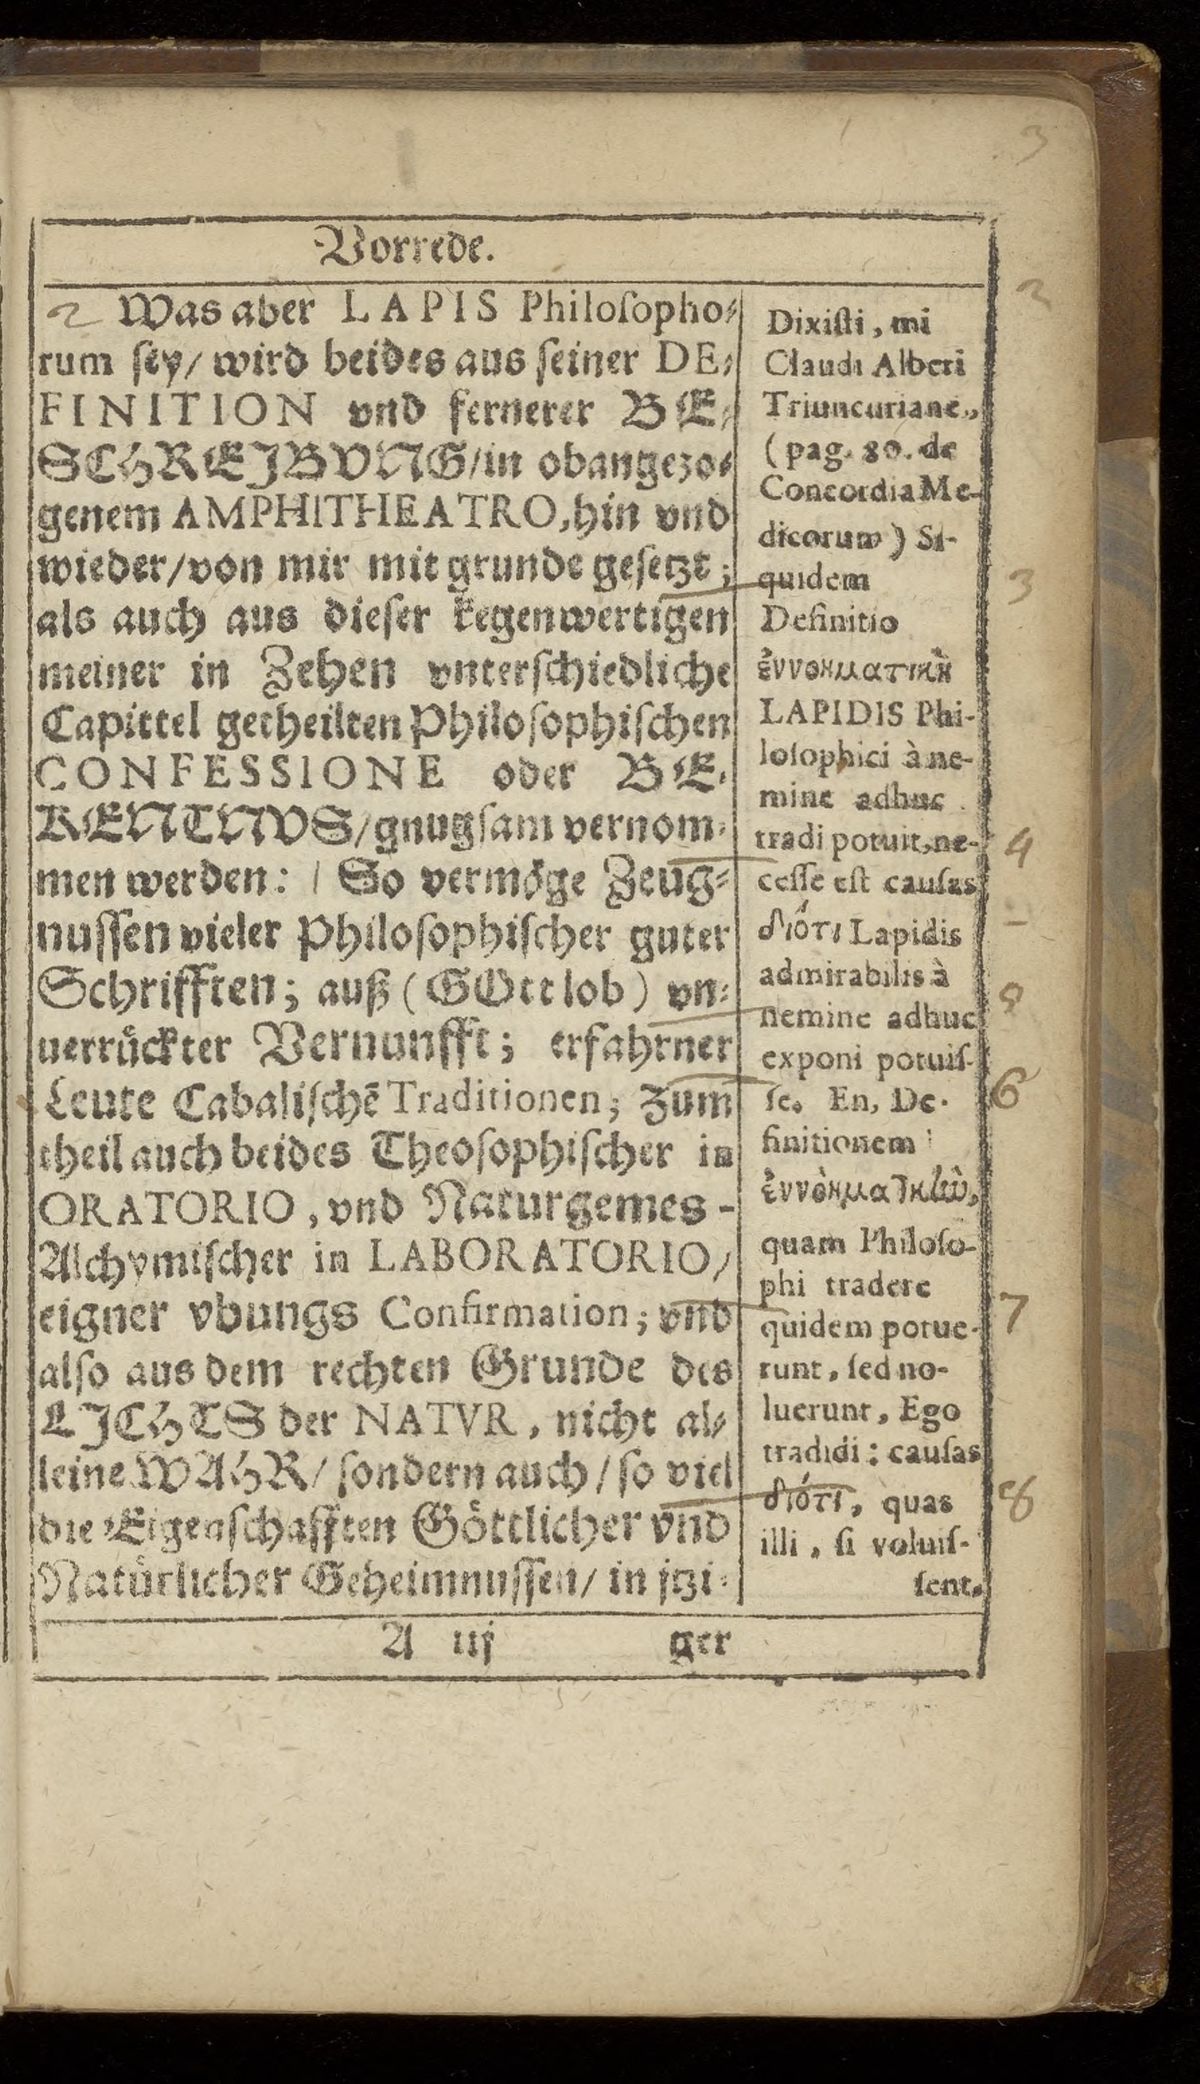 3
Vorrede.
2 Was aber LAPIS Philosopho⸗
rum sey/ wird beides aus seiner DE⸗
FINITION vnd fernerer BE⸗
SCHREIBVNG/in obangezo⸗
genem AMPHITHEATRO, hin vnd
wieder/von mir mit grunde gesetzt;
als auch aus dieser kegenwertigen
meiner in Zehen vnterschiedliche
Capittel getheilten Philosophischen
CONFESSIONE oder BE⸗
KENTNVS/gnugsam vernom⸗
men werden: / So vermöge Zeug⸗
nussen vieler Philosophischer guter
Schrifften; auß (GOtt lob) vn⸗
uerrückter Vernunfft; erfahrner
Leute Cabalischē Traditionen; zum
theil auch beides Theosophischer in
ORATORIO, vnd Naturgemes-
Alchymischer in LABORATORIO/
eigner vbungs Confirmation; vnd
also aus dem rechten Grunde des
LJCHTS der NATVR, nicht al⸗
leine WAHR/ sondern auch/ so viel
die Eigenschafften Göttlicher vnd
Natürlicher Geheimnussen/ in jtzi⸗
Dixisti, mi
Claudi Alberi
Triuncuriane,
(pag. 80. de
Concordia Me-
dicorum) Si-
quidem
Definitio
ἐννοηματικὴ
LAPIDIS Phi-
losophici à ne-
mine adhuc
tradi potuit, ne-
cesse est causas
διότι Lapidis
admirabilis à
nemine adhuc
exponi potuis-
se. En, De-
finitionem
ἐννοηματικὼ,
quam Philoso-
phi tradere
quidem potue-
runt, sed no-
luerunt, Ego
tradidi: causas
διότι, quas
illi, si voluis-
sent,
2
3
4
6
7
8
A iij ger